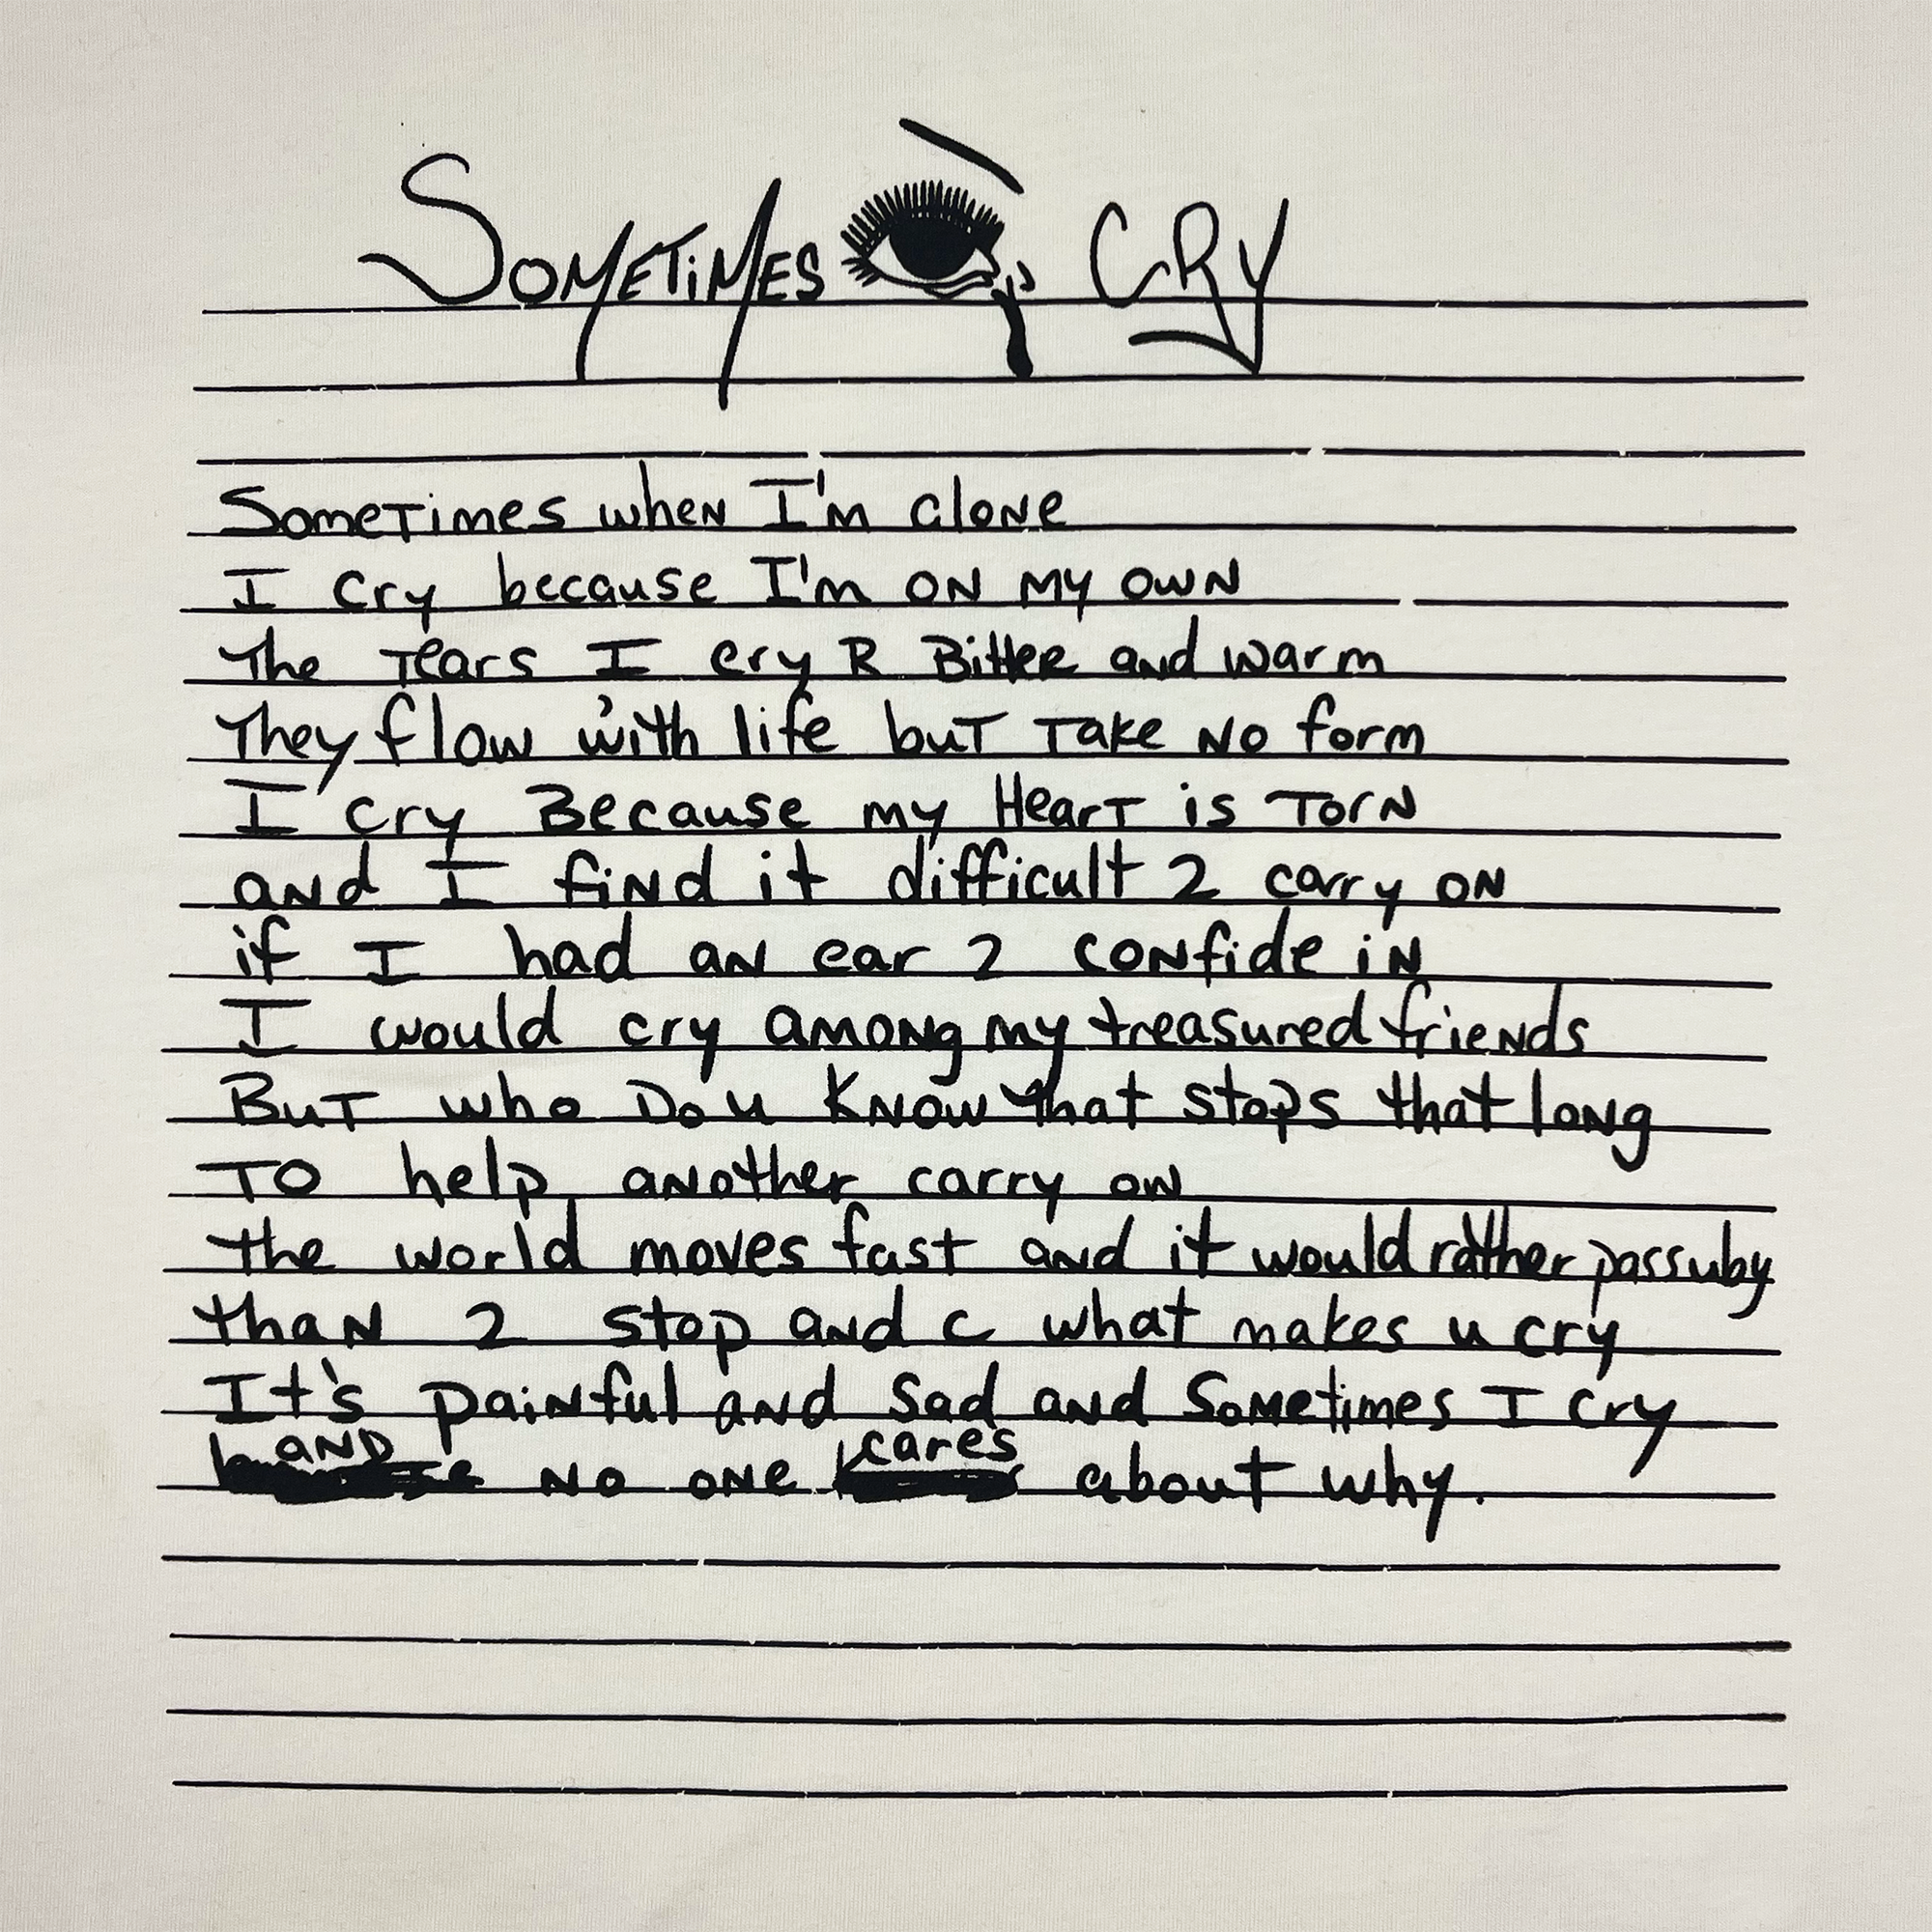 SOMETiMES CRY
Sometimes when I'm alone
I Cry because I'm on my own
The Tears I cry R Bitter and warm
They flow with life but Take No form
I cry Because my Heart is Torn
and I find it difficult 2 carry on
if I had an ear 2 confide in
I would cry among my treasured friends
But who Do u Know that stops that long
To help another carry on
the world moves fast and it would rather pass u by
than 2 stop and c what makes u cry
It's painful and sad and Sometimes I cry
AND no one cares about why.